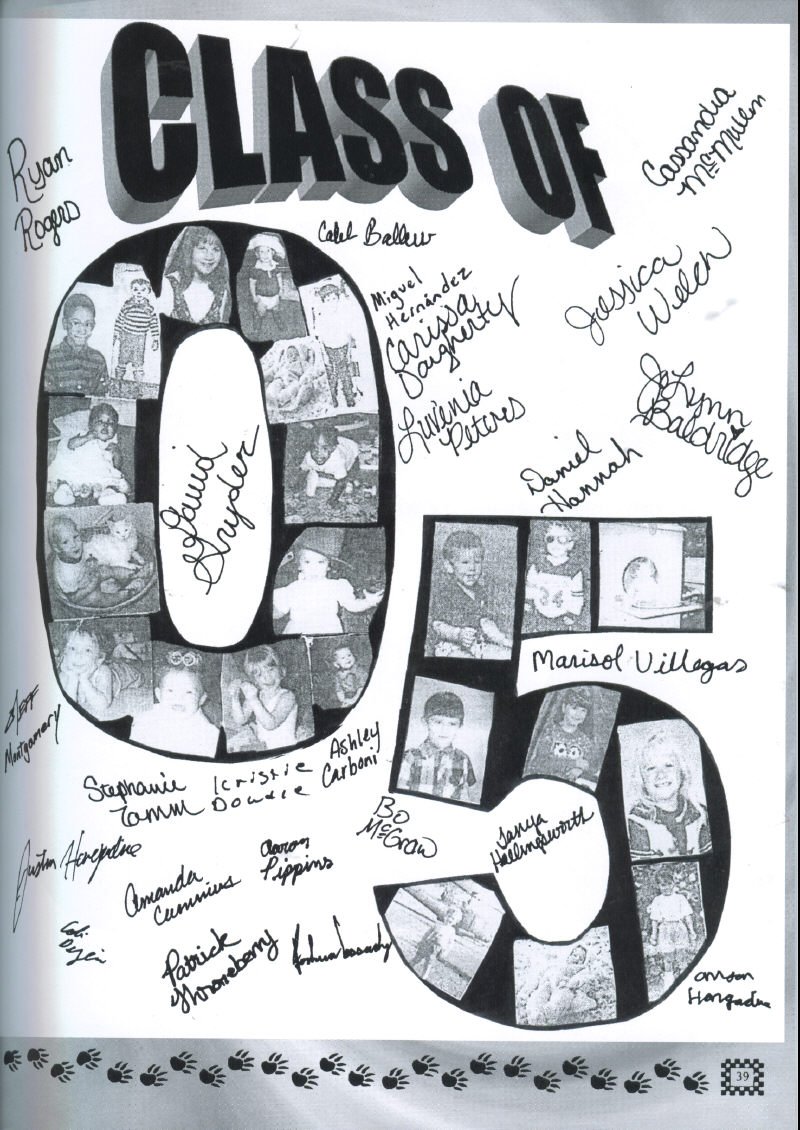 CLASS OF
Ryan
Rogers
Cassandra
McMullen
Caleb Ballew
Miguel
Hernández
Carissa
Daugherty
Jessica
Welch
Luvenia
Peters
JoLynn
Baldridge
David
Snyder
Daniel
Hannah
34
Marisol Villegas
Jeff
Montgomery
Stephanie
Tamm
Kristie
Dowdle
Ashley
Carboni
Bo
McGraw
Tanya
Hollingsworth
Justin Hargadine
Amanda
Cummins
Aaron
Pippins
Patrick
Throneberry
Joshua Cassady
Hargadine
05
39